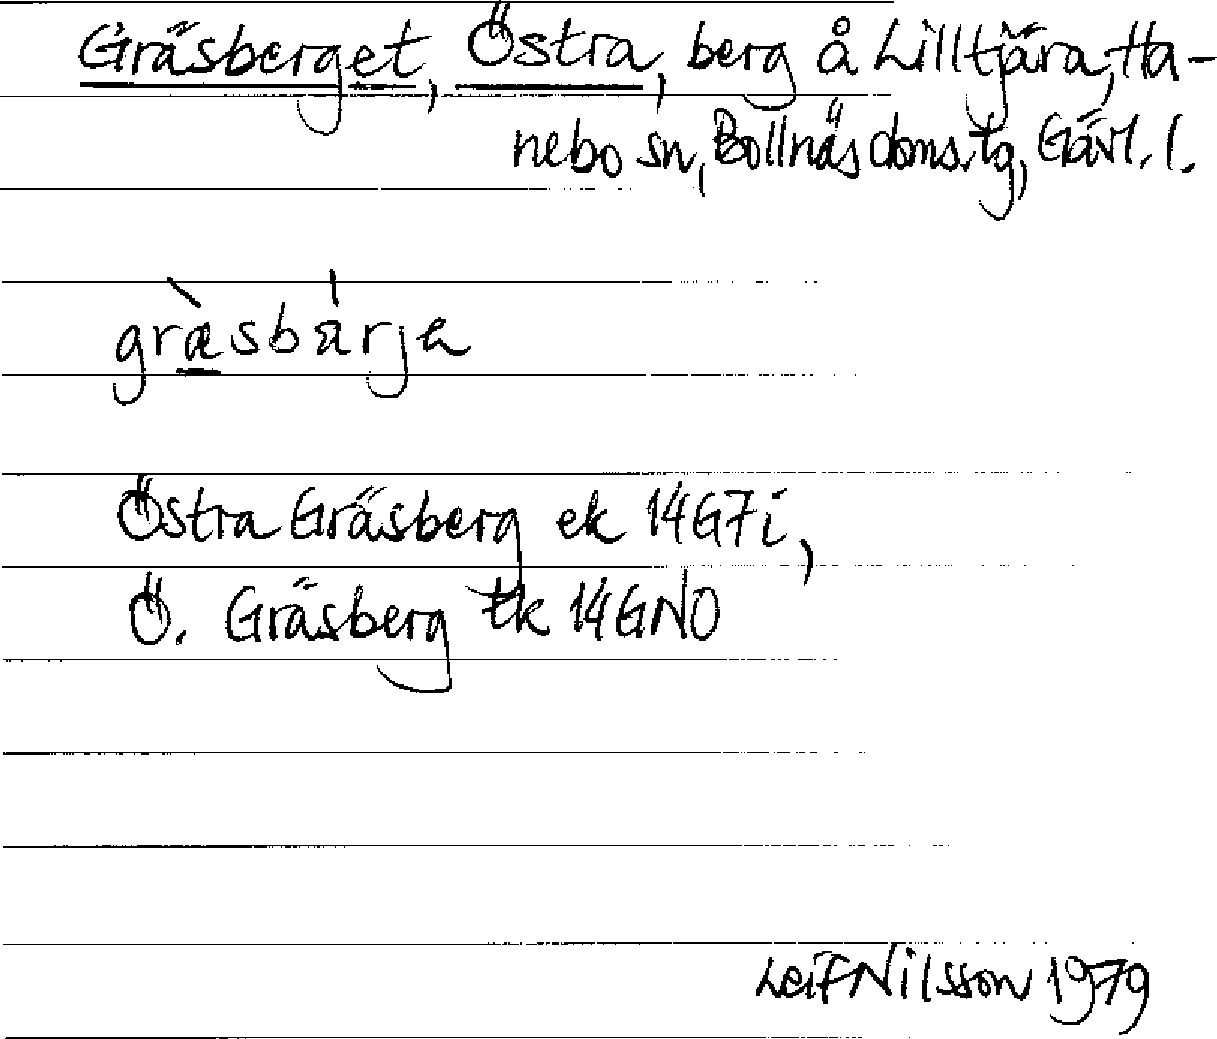 Gräsberget, Östra, berg å Lilltjära, Ha-
nebo sn, Bollnäs doms.tg, Gävl. l.
græ̀sbárja
Östra Gräsberg ek 14G7i,
Ö. Gräsberg tk 14GNO
Leif Nilsson 1979